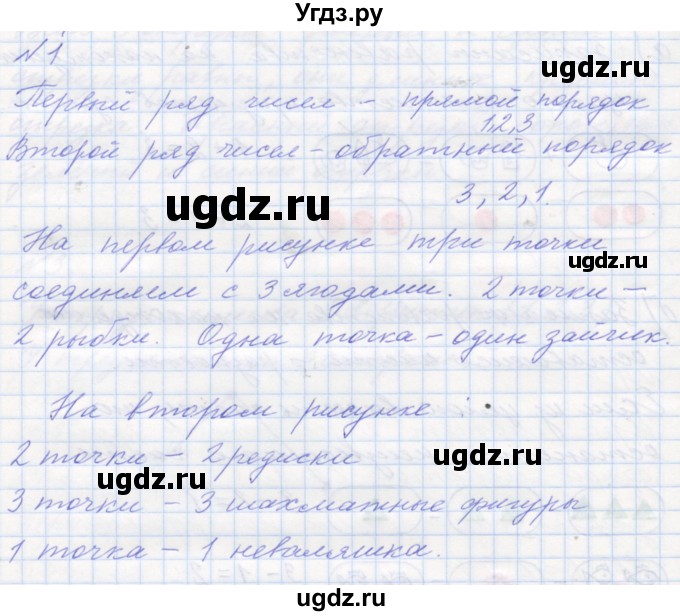 Угдз.ру
№1
Первый ряд чисел – прямой порядок
1,2,3
Второй ряд чисел – обратный порядок
3, 2, 1.
На первом рисунке три точки
соединяем с 3 ягодами. 2 точки –
2 рыбки. Одна точка – один зайчик.
На втором рисунке :
2 точки – 2 редиски
3 точки – 3 шахматные фигуры
1 точка – 1 неваляшка.
ugdz.ru
ugdz.ru
ugdz.ru
ugdz.ru
ugdz.ru
ugdz.ru
ugdz.ru
ugdz.ru
Угдз.ру